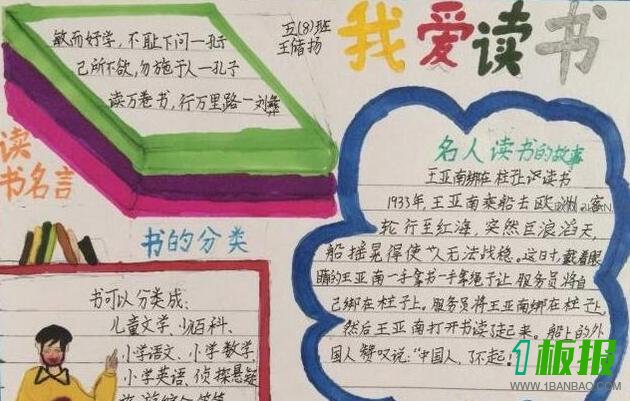 敏而好学，不耻下问一孔子
己所不欲，勿施于人一孔子
读万卷书，行万里路一刘彝
五(8)班
王储扬
我爱读书
读
书名言
书的分类
书可以分类成：
儿童文学、少百科、
小学语文、小学数学、
小学英语、侦探悬疑
名人读书的故事
王亚南绑在柱子上读书
1933年，王亚南乘船去欧洲
轮行至红海，突然巨浪滔天，
船摇晃得使人无法战稳。这时，戴着眼
睛的王亚南一手拿书一手拿绳子让服务员将自
己绑在柱子上。服务员将王亚南绑在柱子上，
然后王亚南打开书读了起来。船上的外
国人赞叹说："中国人，了不起
1板报
WWW.1BANBAO.COM